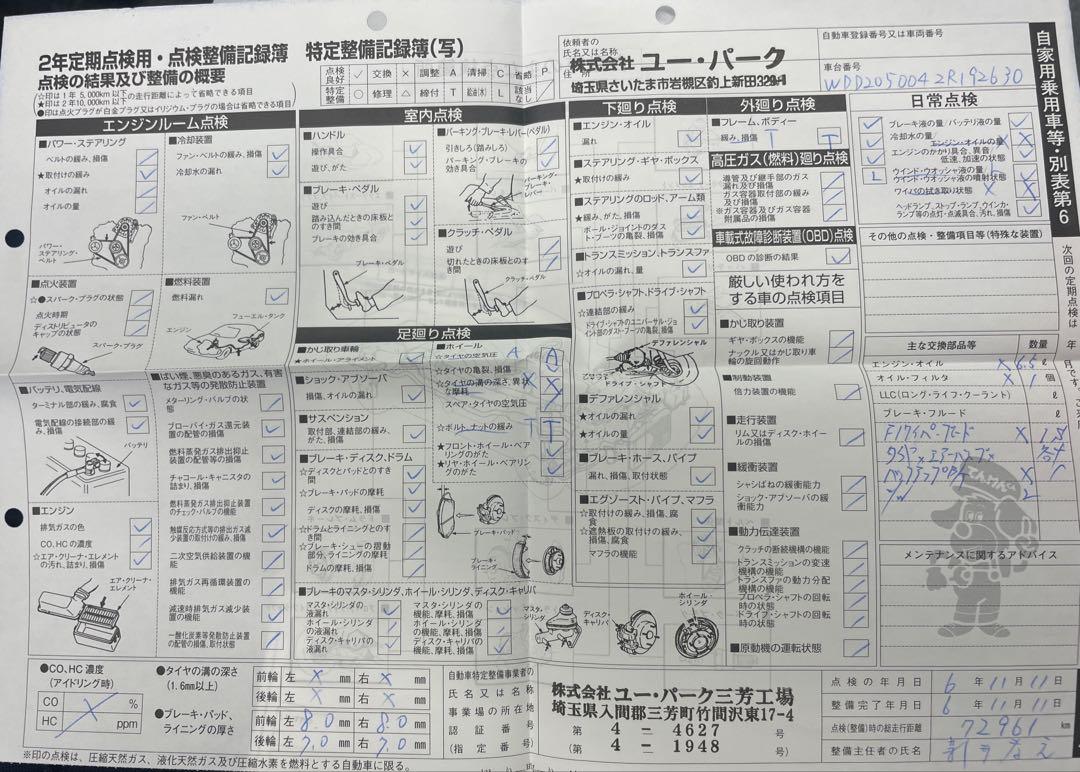 2年定期点検用・点検整備記録簿 特定整備記録簿(写)
点検の結果及び整備の概要
☆印は1年 5,000km以下の走行距離によって省略できる項目
★印は2年10,000km以下
●印は点火プラグが白金プラグ又はイリジウム・プラグの場合は省略できる項目
点検良好 ✓ 交換 × 調整 A 清掃 C 省略 P
特定整備 ○ 修理 △ 締付 T 給油(水) L 該当なし
依頼者の
氏名又は名称
住所
株式会社 ユー・パーク
埼玉県さいたま市岩槻区釣上新田329-1
自動車登録番号又は車両番号
車台番号
WDD2050042R192630
自家用乗用車等・別表第6
エンジンルーム点検
■パワー・ステアリング
ベルトの緩み、損傷
★取付けの緩み
オイルの漏れ
オイルの量
パワー・ステアリング・ベルト
■冷却装置
ファン・ベルトの緩み、損傷
冷却水の漏れ
ファン・ベルト
■点火装置
☆●スパーク・プラグの状態
点火時期
ディストリビュータのキャップの状態
スパーク・プラグ
■燃料装置
燃料漏れ
フューエル・タンク
エンジン
■バッテリ、電気配線
ターミナル部の緩み、腐食
電気配線の接続部の緩み、損傷
バッテリ
■エンジン
排気ガスの色
CO、HCの濃度
☆エア・クリーナ・エレメントの汚れ、詰まり、損傷
エア・クリーナ・エレメント
■ばい煙、悪臭のあるガス、有害なガス等の発散防止装置
メターリング・バルブの状態
ブローバイ・ガス還元装置の配管の損傷
燃料蒸発ガス排出抑止装置の配管等の損傷
チャコール・キャニスタの詰まり、損傷
燃料蒸発ガス排出抑止装置のチェック・バルブの機能
触媒反応方式等の排出ガス減少装置の取付けの緩み、損傷
二次空気供給装置の機能
排気ガス再循環装置の機能
減速時排気ガス減少装置の機能
一酸化炭素等発散防止装置の配管の損傷、取付状態
室内点検
■ハンドル
操作具合
遊び、がた
■ブレーキ・ペダル
遊び
踏み込んだときの床板とのすき間
ブレーキの効き具合
ブレーキ・ペダル
■パーキング・ブレーキ・レバー(ペダル)
引きしろ(踏みしろ)
パーキング・ブレーキの効き具合
パーキング・ブレーキ・レバー
■クラッチ・ペダル
遊び
切れたときの床板とのすき間
クラッチ・ペダル
足廻り点検
■かじ取り車輪
☆ホイール・アライメント
■ショック・アブソーバ
損傷、オイルの漏れ
■サスペンション
取付部、連結部の緩み、がた、損傷
■ブレーキ・ディスク、ドラム
☆ディスクとパッドとのすき間
☆ブレーキ・パッドの摩耗
ディスクの摩耗、損傷
☆ドラムとライニングとのすき間
☆ブレーキ・シューの摺動部分、ライニングの摩耗
ドラムの摩耗、損傷
■ホイール
☆タイヤの空気圧 A A
☆タイヤの亀裂、損傷
☆タイヤの溝の深さ、異状な摩耗
スペア・タイヤの空気圧
☆ボルト、ナットの緩み T T
★フロント・ホイール・ベアリングのがた
★リヤ・ホイール・ベアリングのがた
ブレーキ・パッド
ブレーキ・ライニング
■ブレーキのマスタ・シリンダ、ホイール・シリンダ、ディスク・キャリパ
マスタ・シリンダの液漏れ
ホイール・シリンダの液漏れ
ディスク・キャリパの液漏れ
マスタ・シリンダの機能、摩耗、損傷
ホイール・シリンダの機能、摩耗、損傷
ディスク・キャリパの機能、摩耗、損傷
マスタ・シリンダ
ディスク・キャリパ
ホイール・シリンダ
下廻り点検
■エンジン・オイル
漏れ
■ステアリング・ギヤ・ボックス
★取付けの緩み
■ステアリングのロッド、アーム類
☆緩み、がた、損傷
ボール・ジョイントのダスト・ブーツの亀裂、損傷
■トランスミッション、トランスファ
☆オイルの漏れ、量
■プロペラ・シャフト、ドライブ・シャフト
☆連結部の緩み
ドライブ・シャフトのユニバーサル・ジョイント部のダスト・ブーツの亀裂、損傷
デファレンシャル
ドライブ・シャフト
■デファレンシャル
★オイルの漏れ
★オイルの量
■ブレーキ・ホース、パイプ
漏れ、損傷、取付状態
■エグゾースト・パイプ、マフラ
☆取付けの緩み、損傷、腐食
☆遮熱板の取付けの緩み、損傷、腐食
マフラの機能
外廻り点検
■フレーム、ボディー
緩み、損傷 T T
高圧ガス(燃料)廻り点検
導管及び継手部のガス漏れ及び損傷
ガス容器取付部の緩み及び損傷
※ガス容器及びガス容器附属品の損傷
車載式故障診断装置(OBD)点検
OBDの診断の結果
厳しい使われ方をする車の点検項目
■かじ取り装置
ギヤ・ボックスの機能
ナックル又はかじ取り車輪の旋回動作
■制動装置
倍力装置の機能
■走行装置
リム又はディスク・ホイールの損傷
■緩衝装置
シャシばねの緩衝能力
ショック・アブソーバの緩衝能力
■動力伝達装置
クラッチの断続機構の機能
トランスミッションの変速機構の機能
トランスファの動力分配機構の機能
プロペラ・シャフトの回転時の状態
ドライブ・シャフトの回転時の状態
■原動機の運転状態
日常点検
ブレーキ液の量
バッテリ液の量
冷却水の量
エンジン・オイルの量
エンジンのかかり具合、異音
低速、加速の状態
ウインド・ウオッシャ液の量
ウインド・ウオッシャ液の噴射状態
ワイパの拭き取り状態
ヘッドランプ、ストップ・ランプ、ウインカ・ランプ等の点灯・点滅具合、汚れ、損傷
その他の点検・整備項目等(特殊な装置)
次回の定期点検は 年 月です。
主な交換部品等 数量
エンジン・オイル × 6.5 ℓ
オイル・フィルタ × 1 個
LLC(ロング・ライフ・クーラント) ℓ
ブレーキ・フルード ℓ
メンテナンスに関するアドバイス
てんけんくん
●CO、HC濃度
(アイドリング時)
CO %
HC ppm
●タイヤの溝の深さ
(1.6mm以上)
前輪 左 × mm 右 × mm
後輪 左 × mm 右 × mm
●ブレーキ・パッド、ライニングの厚さ
前輪 左 8.0 mm 右 8.0 mm
後輪 左 7.0 mm 右 7.0 mm
自動車特定整備事業者の
氏名又は名称
事業場の所在地
認証番号
(指定番号)
株式会社 ユー・パーク三芳工場
埼玉県入間郡三芳町竹間沢東17-4
第 4 - 4627 号
(第 4 - 1948 号)
点検の年月日 6 年 11 月 11 日
整備完了年月日 6 年 11 月 11 日
点検(整備)時の総走行距離 72961 km
整備主任者の氏名
※印の点検は、圧縮天然ガス、液化天然ガス及び圧縮水素を燃料とする自動車に限る。